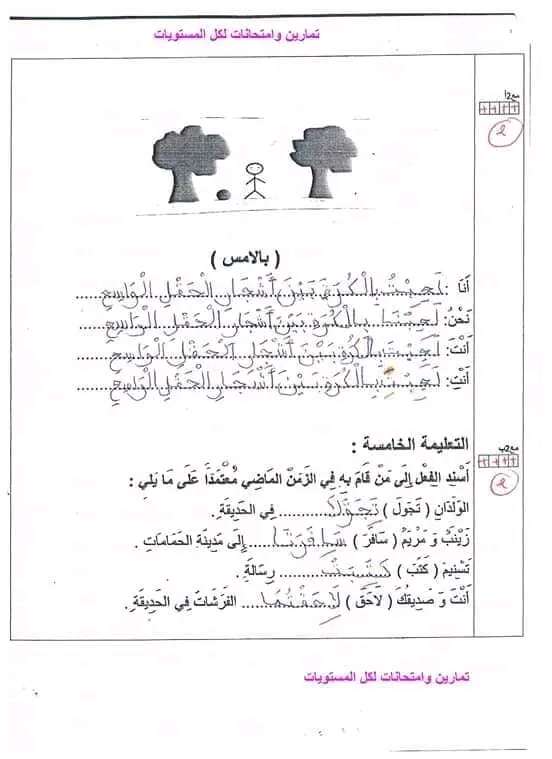 تمارين وامتحانات لكل المستويات
مع2أ
++++
2
( بالامس )
أَنَا : لَعِبْتُ بِالْكُرَةِ بَيْنَ أَشْجَارِ الْحَقْلِ الْوَاسِعِ
نَحْنُ: لَعِبْنَا بِالْكُرَةِ بَيْنَ أَشْجَارِ الْحَقْلِ الْوَاسِعِ
أَنْتَ: لَعِبْتَ بِالْكُرَةِ بَيْنَ أَشْجَارِ الْحَقْلِ الْوَاسِعِ
أَنْتِ: لَعِبْتِ بِالْكُرَةِ بَيْنَ أَشْجَارِ الْحَقْلِ الْوَاسِعِ
التعليمة الخامسة :
++++
2
أَسْنِدِ الفِعْلَ إِلَى مَنْ قَامَ بِهِ فِي الزَّمَنِ المَاضِي مُعْتَمَدًا عَلَى مَا يَلِي :
الوَلَدَانِ ( تَجَوَّلَ ) تَجَوَّلَا فِي الحَدِيقَةِ.
زَيْنَبُ وَ مَرْيَمُ ( سَافَرَ ) سَافَرَتَا إِلَى مَدِينَةِ الحَمَامَاتِ .
تَسْنِيمُ ( كَتَبَ ) كَتَبَتْ رِسَالَةً.
أَنْتَ وَ صَدِيقُكَ ( لَاحَقَ ) لَاحَقْتُمَا الفَرَشَاتَ فِي الحَدِيقَةِ.
تمارين وامتحانات لكل المستويات